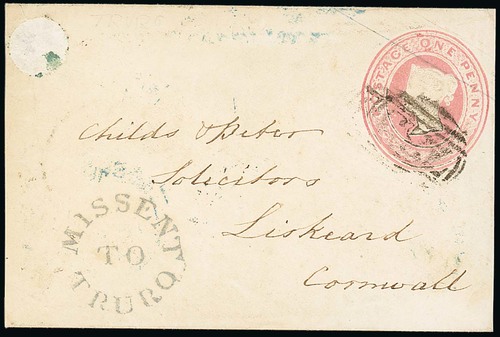 POSTAGE ONE PENNY
Childs & Peter
Solicitors
Liskeard
Cornwall
MISSENT
TO
TRURO